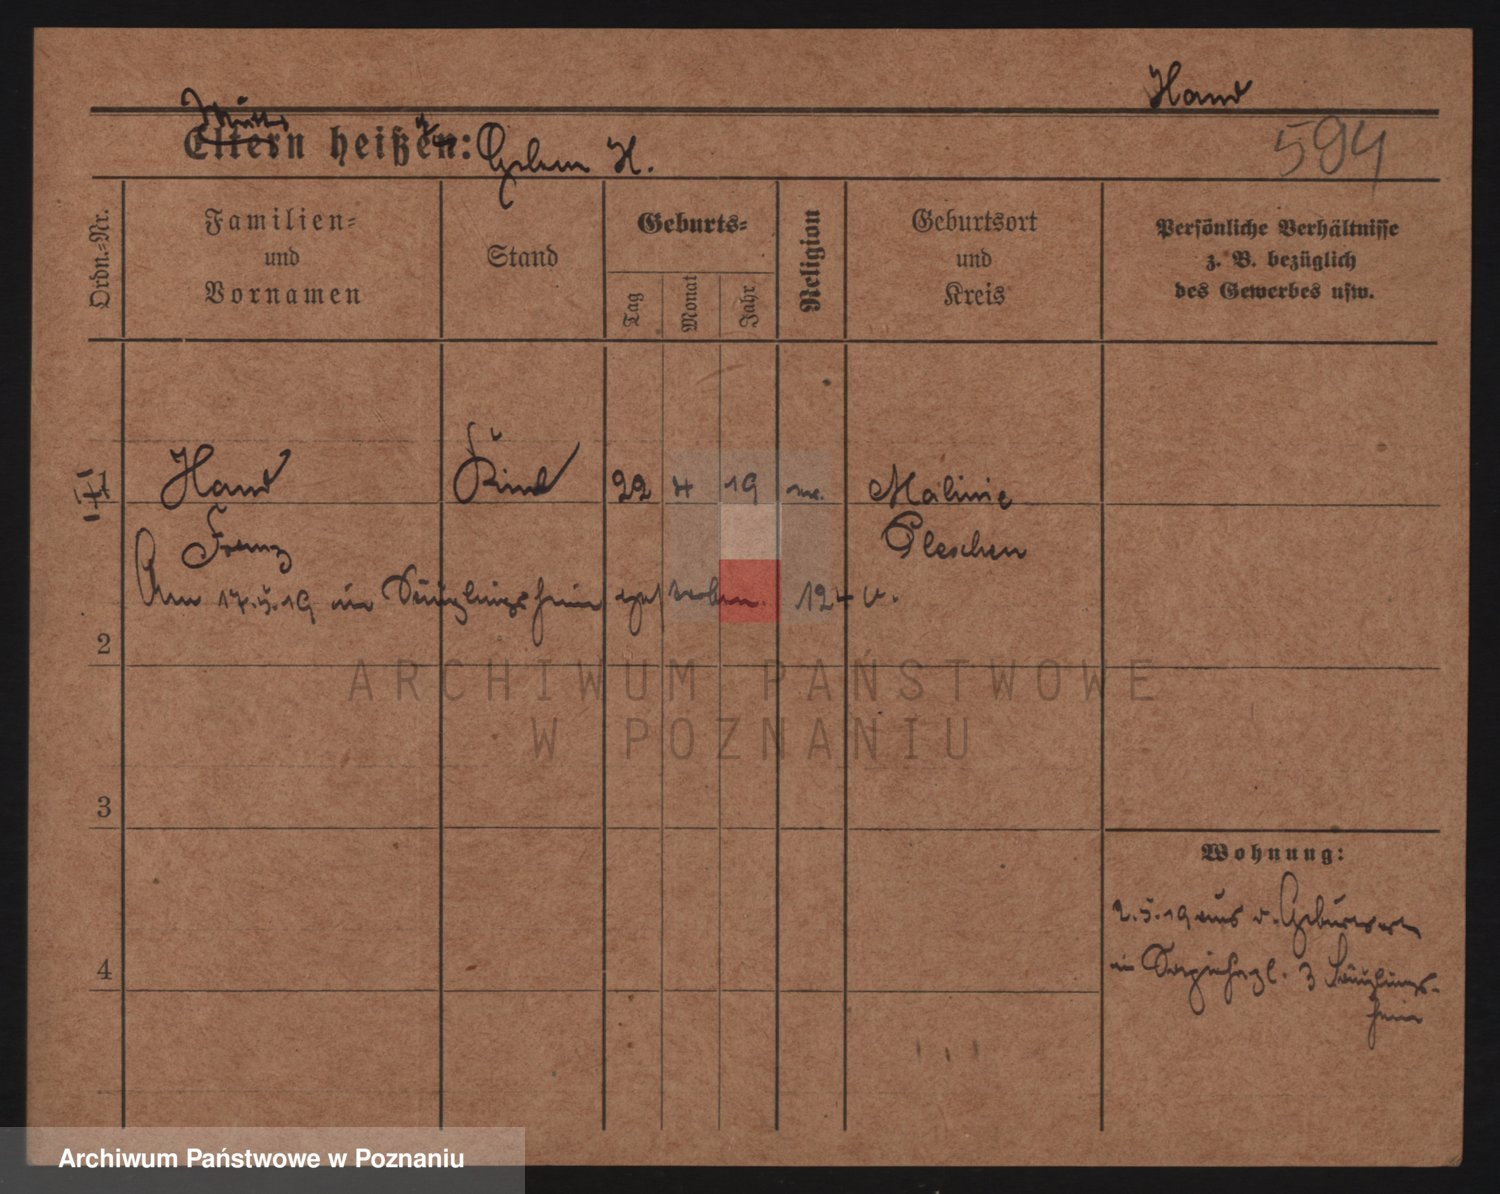 Hand
594
Mutter
Eltern heißen: Helene H.
Ordn.-Nr.
Familien-
und
Vornamen
Stand
Geburts-
Tag
Monat
Jahr
Religion
Geburtsort
und
Kreis
Persönliche Verhältnisse
z. B. bezüglich
des Gewerbes usw.
1 Hand Kind 22 4 19 Malinie
Franz Pleschen
Am 17.5.19 im Säuglingsheim gestorben. 124
2
ARCHIWUM PAŃSTWOWE
W POZNANIU
3
Wohnung:
2.5.19 aus d.
4
in 3 Säuglings-
heim
Archiwum Państwowe w Poznaniu